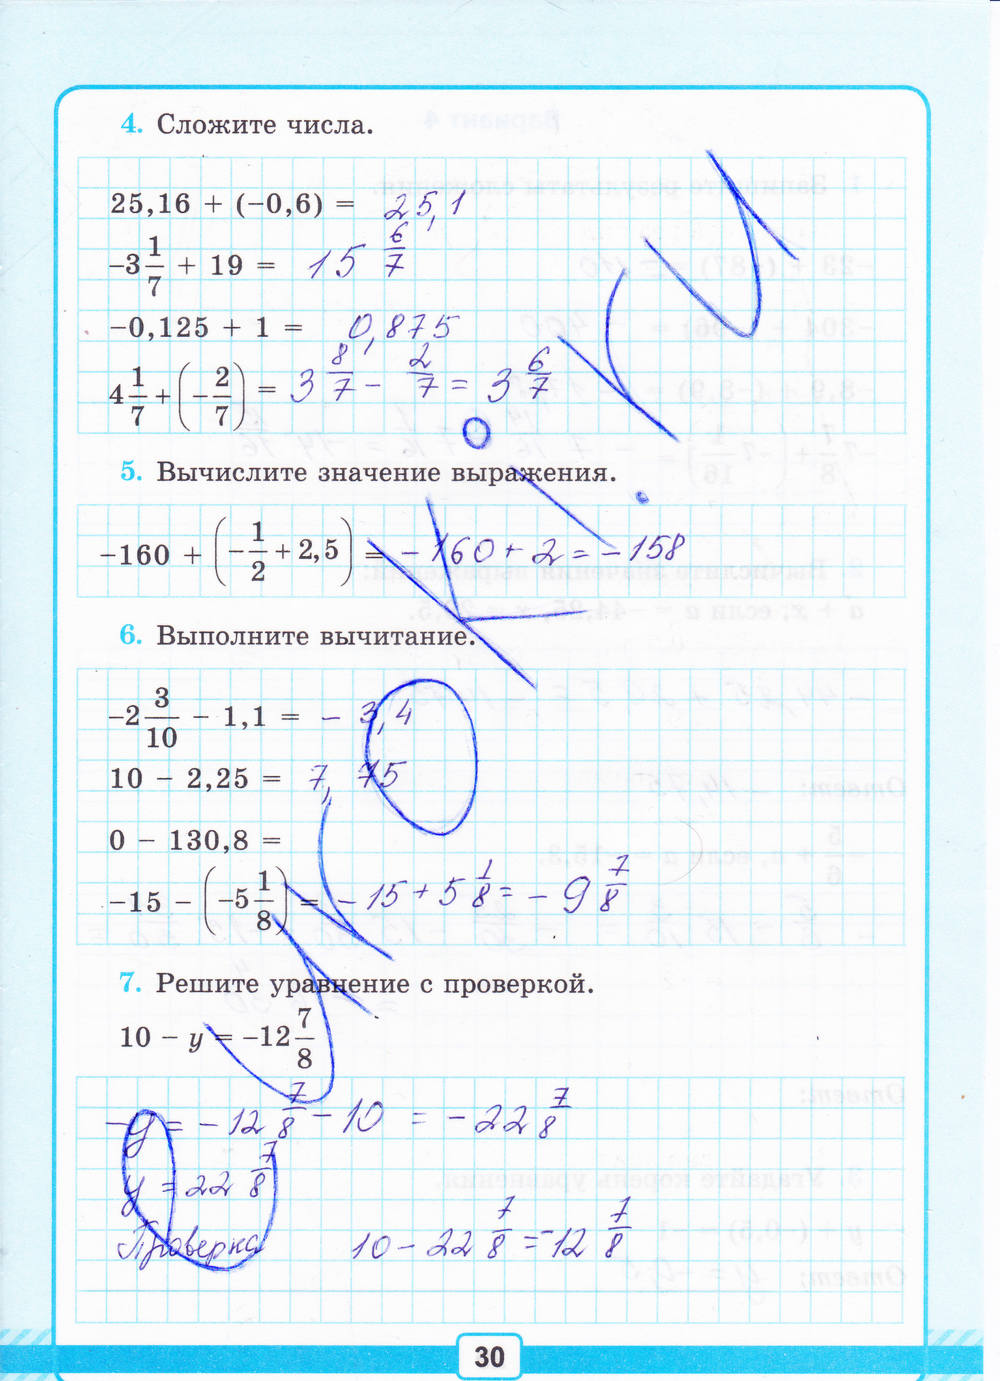 4. Сложите числа.
25,16 + (-0,6) = 25,1
-3 1/7 + 19 = 15 6/7
-0,125 + 1 = 0,875
4 1/7 + (-2/7) = 3 8/7 - 2/7 = 3 6/7
5. Вычислите значение выражения.
-160 + (-1/2 + 2,5) = -160 + 2 = -158
6. Выполните вычитание.
-2 3/10 - 1,1 = -3,4
10 - 2,25 = 7,75
0 - 130,8 =
-15 - (-5 1/8) = -15 + 5 1/8 = -9 7/8
7. Решите уравнение с проверкой.
10 - y = -12 7/8
-y = -12 7/8 - 10 = -22 7/8
y = 22 7/8
Проверка 10 - 22 7/8 = -12 7/8
30